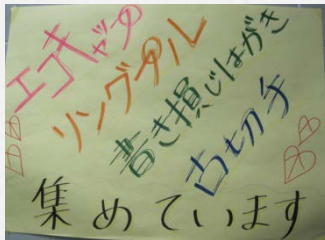 エコキャップ
リングプル
書き損じはがき
古切手
集めています